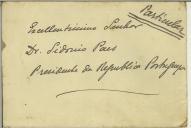 Particular
Excellentissimo Senhor
Dr. Sidonio Paes
Presidente da Republica Portugueza